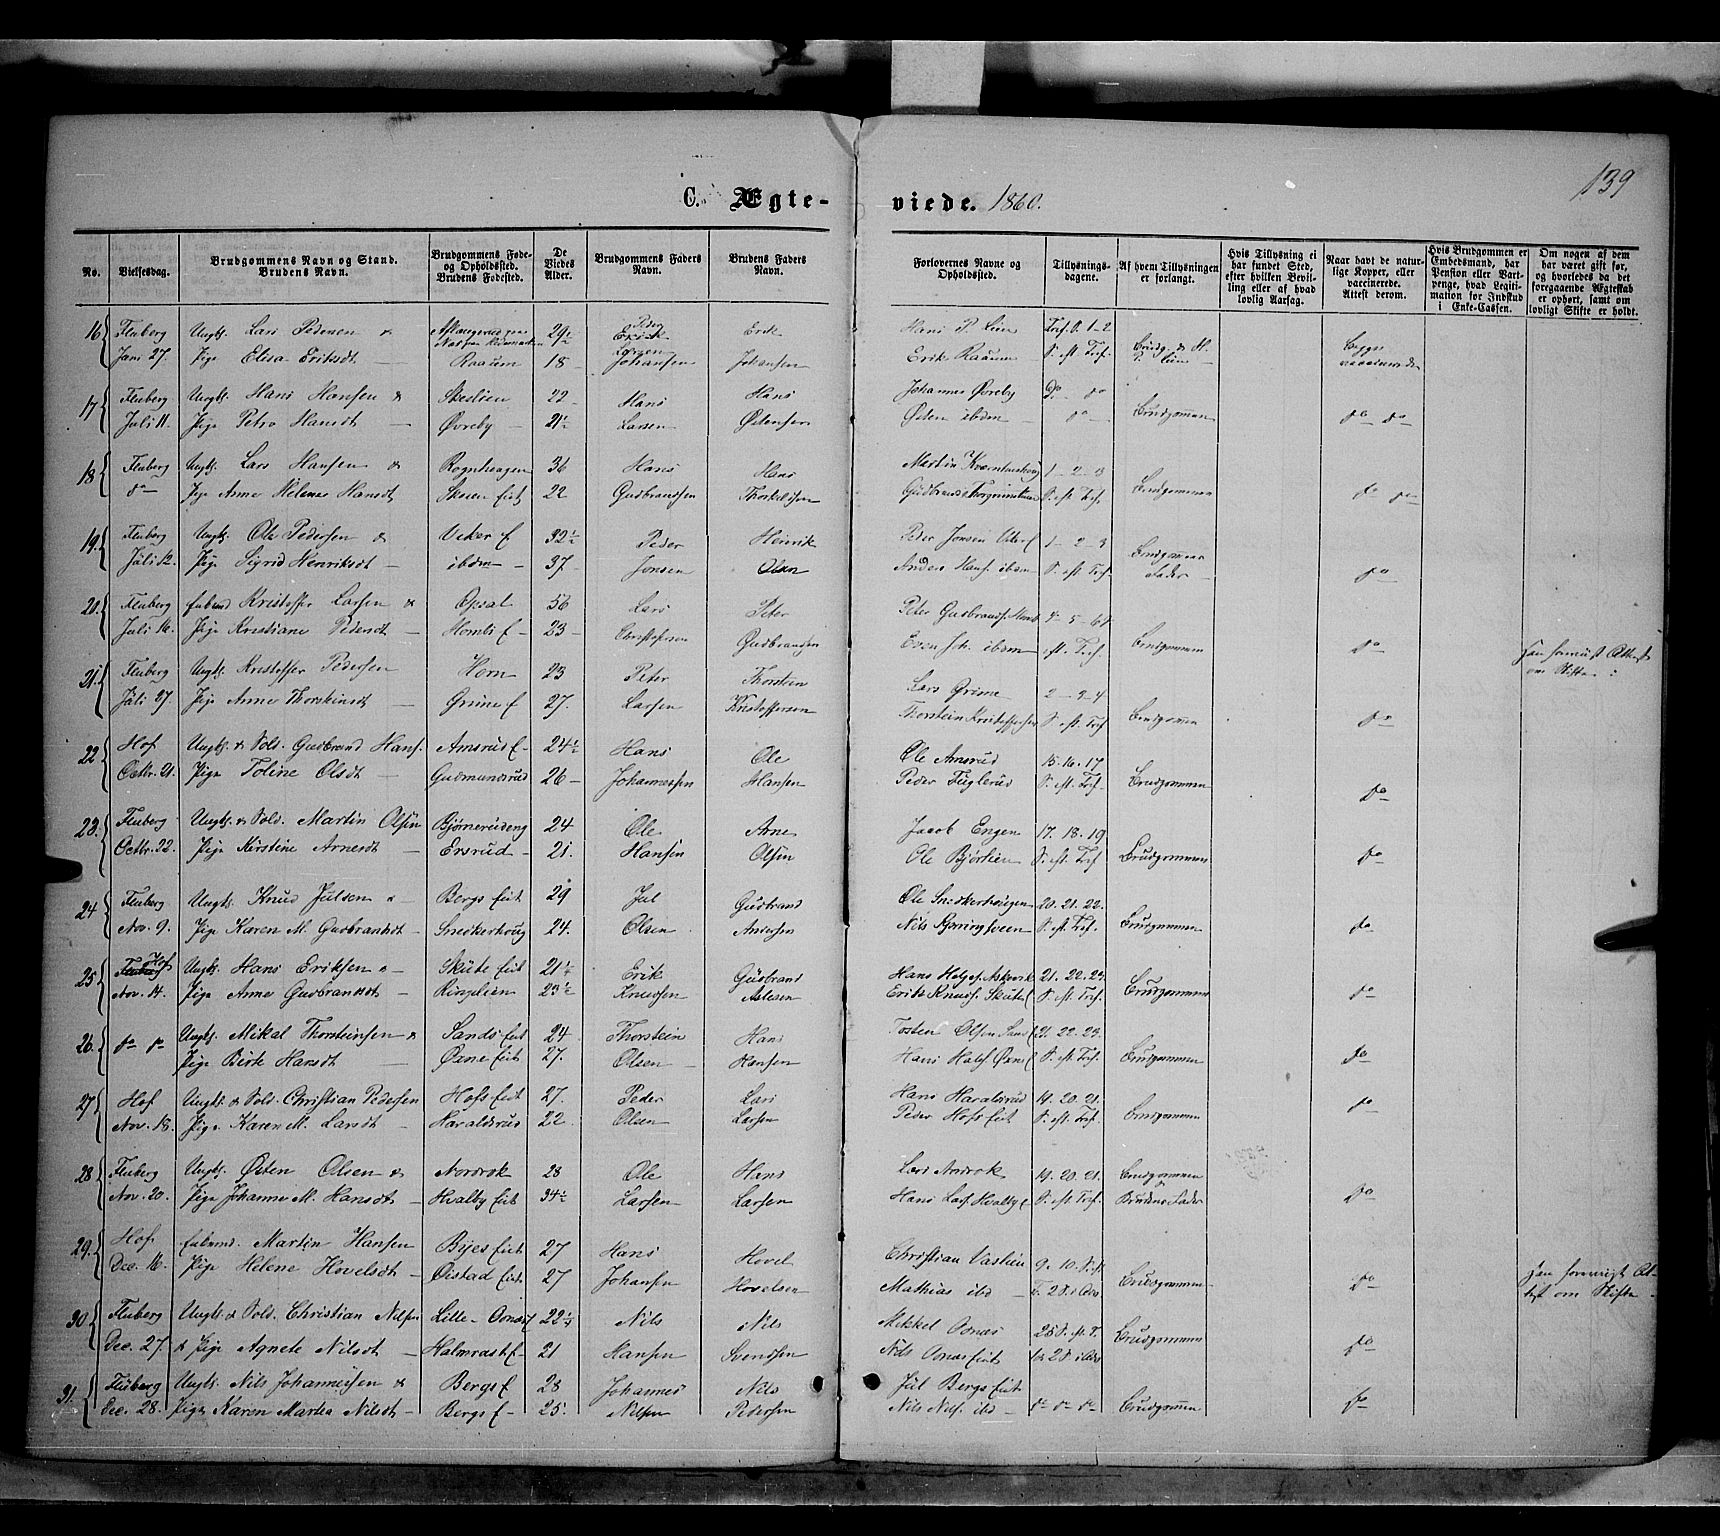 139
C. Ægte- viede. 1860.
No. Vielsesdag. Brudgommens Navn og Stand. Brudens Navn. Brudgommens Føde- og Opholdsted. Brudens Fødested. De Viedes Alder. Brudgommens Faders Navn. Brudens Faders Navn. Forlovernes Navne og Opholdsted. Tillysnings-dagene. Af hvem Tillysningen er forlangt. Hvis Tillysning ei har fundet Sted, efter hvilken Bevilling eller af hvad lovlig Aarsag. Naar havt de naturlige Kopper, eller vaccinerede. Attest derom. Hvis Brudgommen er Embedsmand, har Pension eller Vartpenge, hvad Legitimation for Indskud i Enke-Cassen. Om nogen af dem har været gift før, og hvorledes da det foregaaende Ægteskab er ophørt, samt om lovligt Skifte er holdt.
16 Fluberg Ungk. Lars Pedersen & 29½ Peder Erik Hans P. Lien 1-2 Begge
Jani 27. Pige Elisa Eriksdt Raaum 18 Larsen Johansen Johansen Erik Raaum P. est. Tref. Brudg. & H. P. Lien vaccinerede
17 Fluberg Ungk. Hans Hansen & Skeslien 22 Hans Hans Johannes Øvreby do do
Juli 11. Pige Petro Hansdt Øvreby 21½ Larsen Østensen Østen ibdm do Brudgommen do do
18 Fluberg Ungk. Lars Hansen & Rognhaugen 36 Hans Hans Martin Kværnhaug 1-2-3
do Pige Anne Helene Hansdt Skoien Eiet 22 Gudbrandsen Thorkildsen P. est. Tref. Brudgommen do do
19. Fluberg Ungk. Ole Pedersen & Veker E 32½ Peder Heinrik Peder Jonsen 1-2-3
Juli 12. Pige Sigrid Henriksdt ibdm 37 Jonsen Olsen Anders Hans. ibdm P. est. Tref. Brudgommens Fader do
20. Fluberg Enkemd Kristoffer Larsen & Opsal 56 Lars Peter Peter Gudbrands.
Juli 16. Pige Kristiane Pedersdt Hombs E 23 Christofersen Gudbrandsen Even Joh. ibdm est. Tref. Brudgommen do Han foreviist Attest om Skifte
21. Fluberg Ungk. Kristoffer Pedersen Horn 23 Peter Thorstein Lars Grime 2-3-4
Juli 27. Pige Anne Thorsteinsdt Grime E 27. Larsen Kristoffersen Thorstein Kristoffersen P. est. Tref. Brudgommen do
22 Hof Ungk. & Sold. Gudbrand Hans. Amsrud E 24½ Hans Ole Ole Amsrud 15. 16. 17
Octbr. 21. Pige Toline Olsdt Gudmundsrud 26 Johannessen Hansen Peder Fuglerud P. est. Tref. Brudgommen do
23. Fluberg Ungk. & Sold. Martin Olsen Bjørnerudeng 24 Ole Arne Jacob Engen 17. 18. 19
Octbr. 22. Pige Kirstine Arnesdt Ersrud 21. Hansen Olsen Ole Bjørlien P. est. Tref Brudgommen do
24 Fluberg Ungk. Knud Julsen & Bergs Eiet 29 Jul Gudbrand Ole Snedkerhougen 20. 21. 22.
Nov. 9. Pige Karen M. Gudbrandsdt Snedkerhoug 24. Olsen Andersen P. est. Tref. Brudgommen do
25 Hof Ungk. Hans Eriksen & Skute Eiet 21½ Erik Gudbrand Hans Helges. Askvik 21. 22. 23.
Nov. 14. Pige Anne Gudbrandsdt Ringelien 23½ Knudsen Aslesen Erik Knuds. Skute E P. est. Tref. Brudgommen do
26. do do Ungk. Mikal Thorsteinsen & Sands Eiet 24 Thorstein Hans Tosten Olsen Sands E 21. 22. 23.
Pige Birte Hansdt Øxne Eiet 27. Olsen Hansen Hans Hals. Øxne E P. est. Tref. Brudgommen do
27 Hof Ungk. & Sold. Christian Pedersen Hofs Eiet 27. Peder Lars Hans Haraldsrud 19. 20. 21.
Nov. 18. Pige Karen M. Larsdt Haraldsrud 22. Olsen Larsen Peder Hofs Eiet P. est. Tref. Brudgommen do
28 Fluberg Ungk. Østen Olsen & Nordrok 28 Ole Hans Lars Nordrok 19. 20. 21. Brudgommen
Nov. 20. Pige Johanne M. Hansdt Hvalby Eiet 34½ Larsen Larsen Hans Lars. Hvalby E P. est. Tref. Brudens Fader do
29. Hof Enkemd. Martin Hansen Byes Eiet 27 Hans Hovel Christian Vaslien 9. 10.
Dec. 16. Pige Helene Hovelsdt Øistad Eiet 27 Johansen Hovelsen Mathias ibd Brudgommen do Han foreviist Attest om Skifte
30 Fluberg Ungk. & Sold. Christian Nilsen Lille-Oonæs E 22½ Nils Nils Mikkel Oonæs
Dec. 27. & Pige Agnete Nilsdt Halmrast E 21 Hansen Svendsen Nils Oonæs Eiet Brudgommen do
31. Fluberg Ungk. Nils Johannessen & Bergs E 28 Johannes Nils Jul Bergs Eiet
Dec. 28. Pige Karen Martea Nilsdt Bergs E 25. Nilsen Pedersen Nils Nils. ibd do do do Brudgommen do